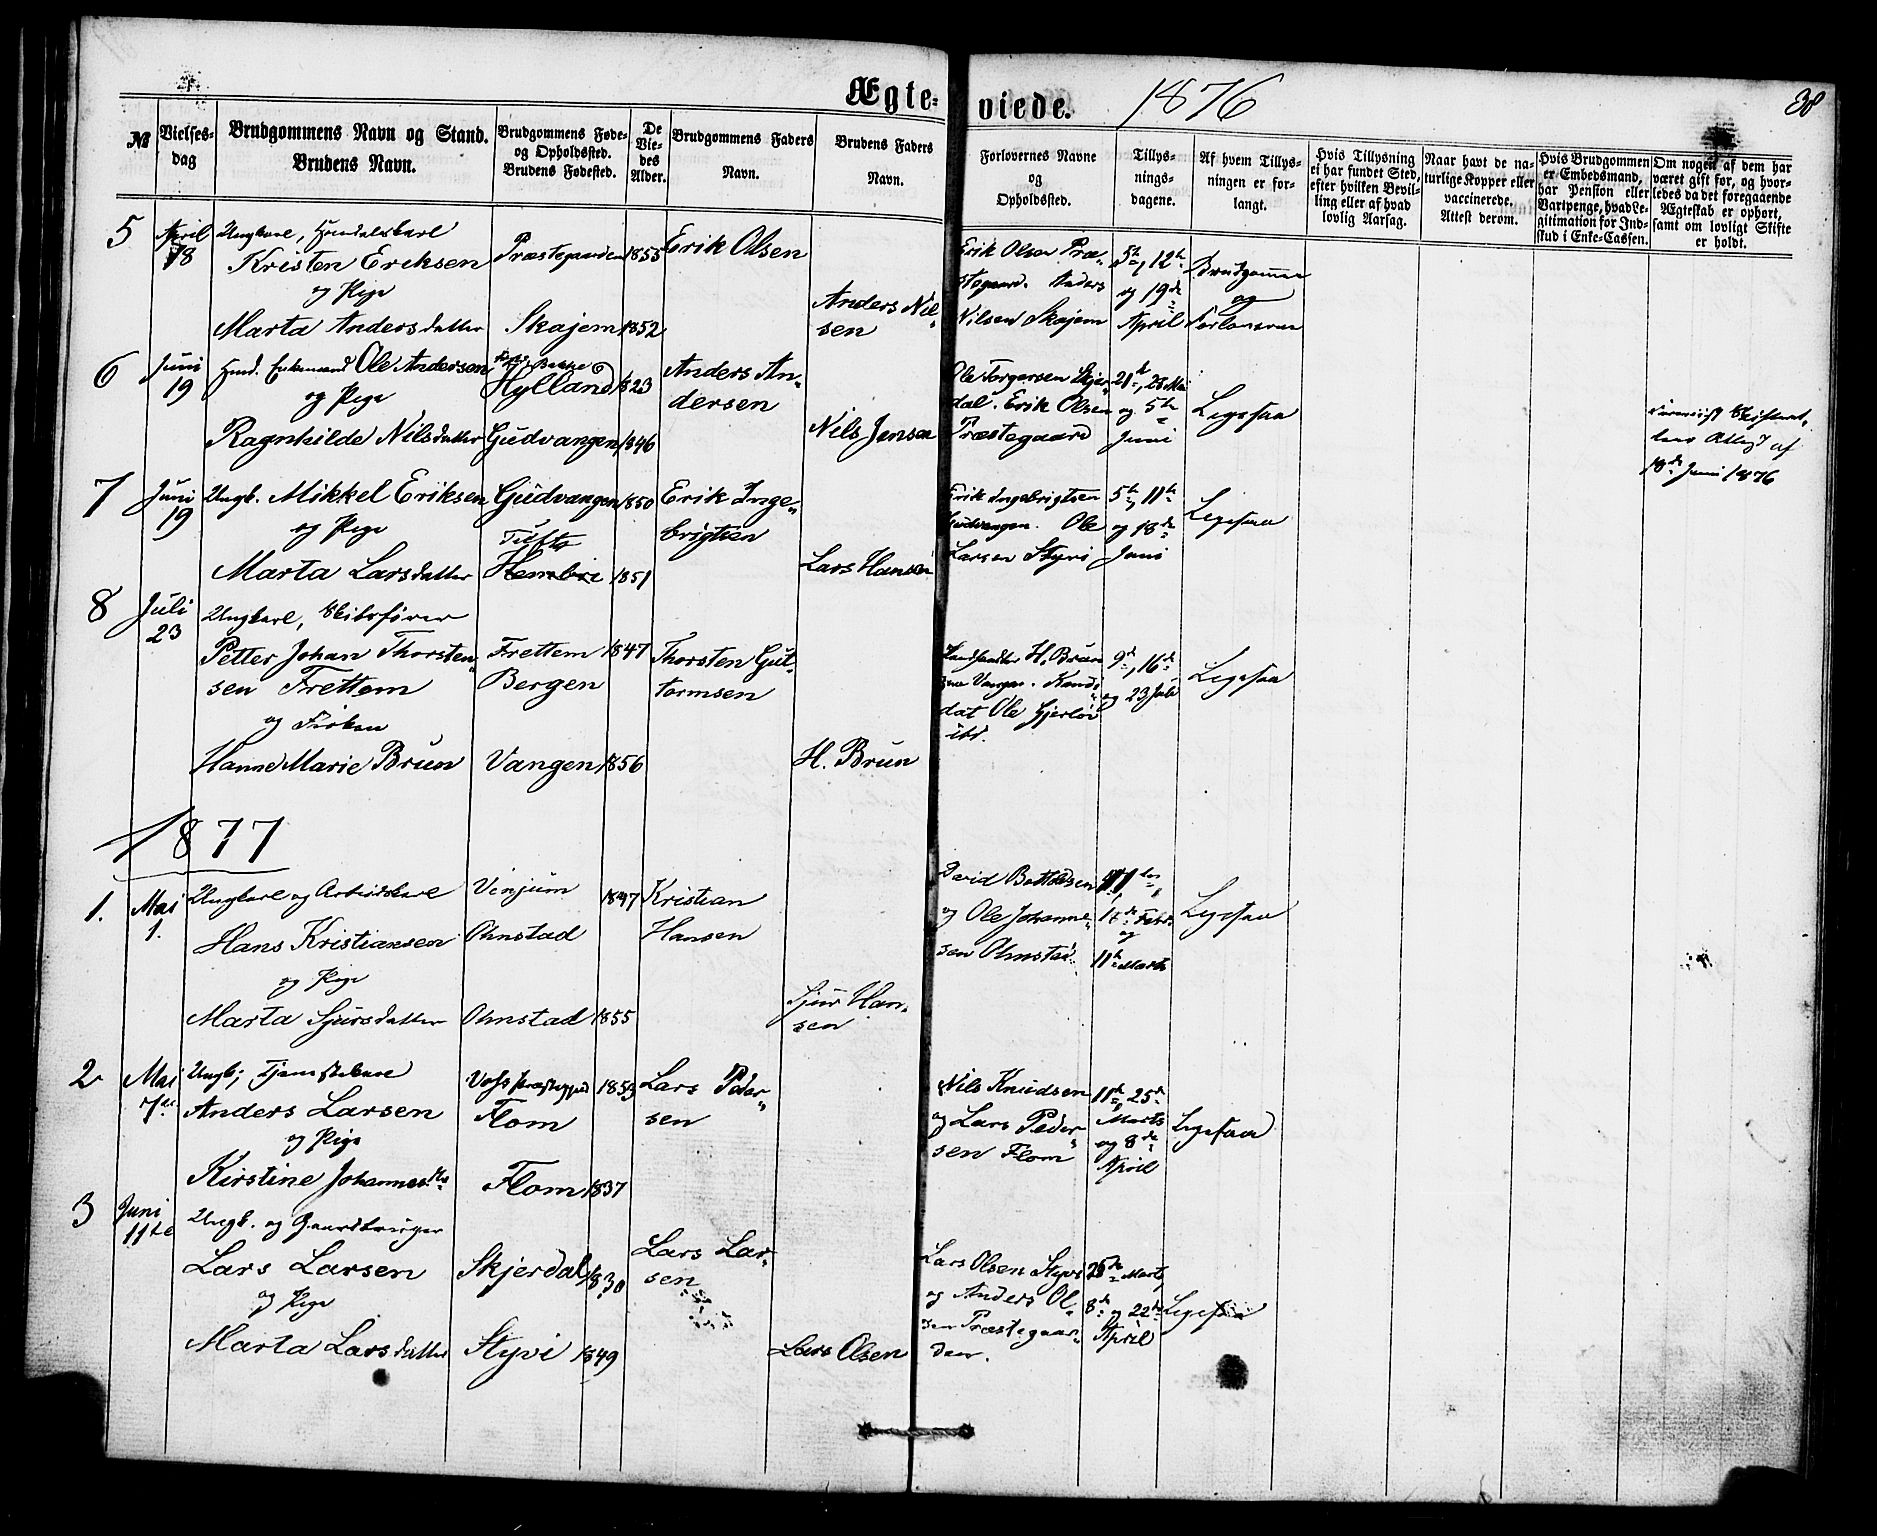 Ægte-viede. 1876
38
№
Vielses-
dag
Brudgommens Navn og Stand.
Brudens Navn.
Brudgommens Føde-
og Opholdssted.
Brudens Fødested.
De
Vie-
des
Alder.
Brudgommens Faders
Navn.
Brudens Faders
Navn.
Forlovernes Navne
og
Opholdssted.
Tillys-
nings-
dagene.
Af hvem Tillys-
ningen er for-
langt.
Hvis Tillysning
ei har fundet Sted,
efter hvilken Bevil-
ling eller af hvad
lovlig Aarsag.
Naar havt de na-
turlige Kopper eller
vaccinerede.
Attest derom.
Hvis Brudgommen
er Embedsmand,
har Pension eller
Vartpenge, hvad Le-
gitimation for Ind-
skud i Enke-Cassen.
Om nogen af dem har
været gift før, og hvor-
ledes da det foregaaende
Ægteskab er ophørt,
samt om lovligt Skifte
er holdt.
5
April
18
Ungkarl, Handelskarl
Kristen Eriksen
og Pige
Marta Andersdatter
Præstegaarden
Skajem
1855
1852
Erik Olsen
Anders Nil-
sen
Erik Olsen Præ-
stegaard. Anders
Nilsen Skajem
5te, 12te
og 19de
April
Brudgommen
og
Forloveren
6
Juni
19
Enkemand Ole Andersen
og Pige
Ragnhilde Nilsdatter
Bakke
Hylland
Gudvangen
1823
1846
Anders An-
dersen
Nils Jensen
Ole Torgersen Skjer-
dal. Erik Olsen
Præstegaard
21de, 28 Mai
og 5te
Juni
Ligesaa
Attest af
18de Juni 1876
7
Juni
19
Ungk. Mikkel Eriksen
og Pige
Marta Larsdatter
Gudvangen
Tufto
Hembre
1850
1851
Erik Inge-
brigtsen
Lars Hansen
Erik Ingebrigtsen
Gudvangen. Ole
Larsen Styvi
5te, 11te
og 18de
Juni
Ligesaa
8
Juli
23
Ungkarl, Skibsfører
Petter Johan Thorsten-
sen Frettem
og Frøken
Hanne Marie Brun
Frettem
Bergen
Vangen
1847
1856
Thorsten Gut-
tormsen
H. Brun
Landhandler H. Brun
Vangen. Kandi-
dat Ole Gjerløv
ibd.
9de, 16de
og 23 Juli
Ligesaa
1877
1.
Mai
1.
Ungkarl og Arbeidskarl
Hans Kristiansen
og Pige
Marta Sjursdatter
Vinjum
Ohnstad
Ohnstad
1847
1855
Kristian
Hansen
Sjur Han-
sen
David Bottolsen
og Ole Johanne-
sen Ohnstad
Febr.
og
11te Marts
Ligesaa
2
Mai
7de
Ungk; Tjenestekarl
Anders Larsen
og Pige
Kirstine Johannesdtr
Voss
Flom
Flom
1853
1837
Lars Peder-
sen
Nils Knudsen
og Lars Peder-
sen Flom
11te, 25de
Marts
og 8de
April
Ligesaa
3
Juni
11te
Ungk. og Gaardbruger
Lars Larsen
og Pige
Marta Larsdatter
Skjerdal
Styvi
1830
1849
Lars Lar-
sen
Lars Olsen
Lars Olsen Styvi
og Anders Ol-
sen Præstegaar-
den.
25de Marts,
8de og 22de
April
Ligesaa